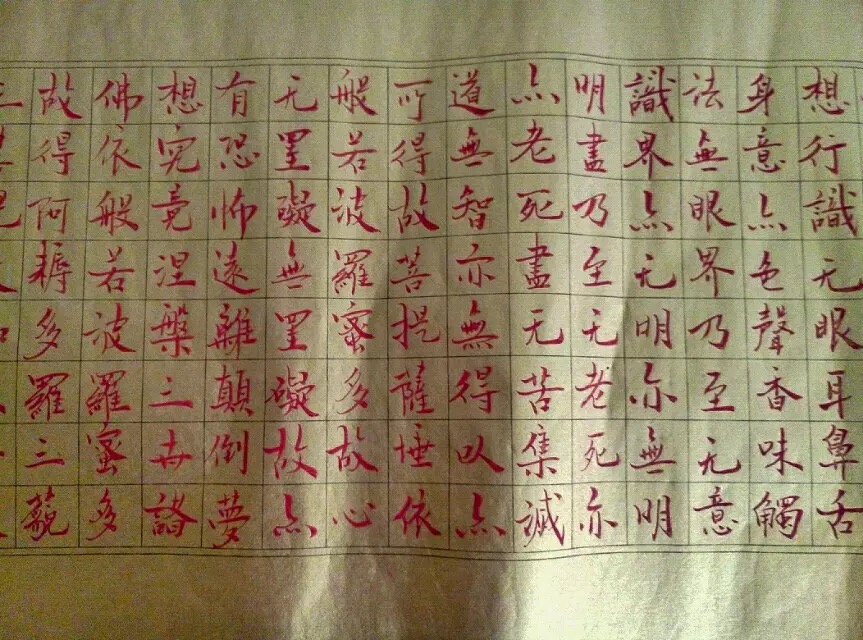 想行識无眼耳鼻舌
身意無色聲香味觸
法無眼界乃至无意
識界無无明亦無明
明盡乃至无老死亦
無老死盡无苦集滅
道無智亦無得以無
所得故菩提薩埵依
般若波羅蜜多故心
无罣礙無罣礙故無
有恐怖遠離顛倒夢
想究竟涅槃三世諸
佛依般若波羅蜜多
故得阿耨多羅三藐